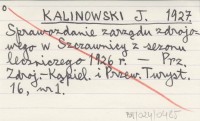 KALINOWSKI J. 1927.
Sprawozdanie zarządu zdrojo-
wego w Szczawnicy z sezonu
leczniczego 1926 r. — Prz.
Zdroj.-Kąpiel. i Przew. Turyst.
16, nr 1.